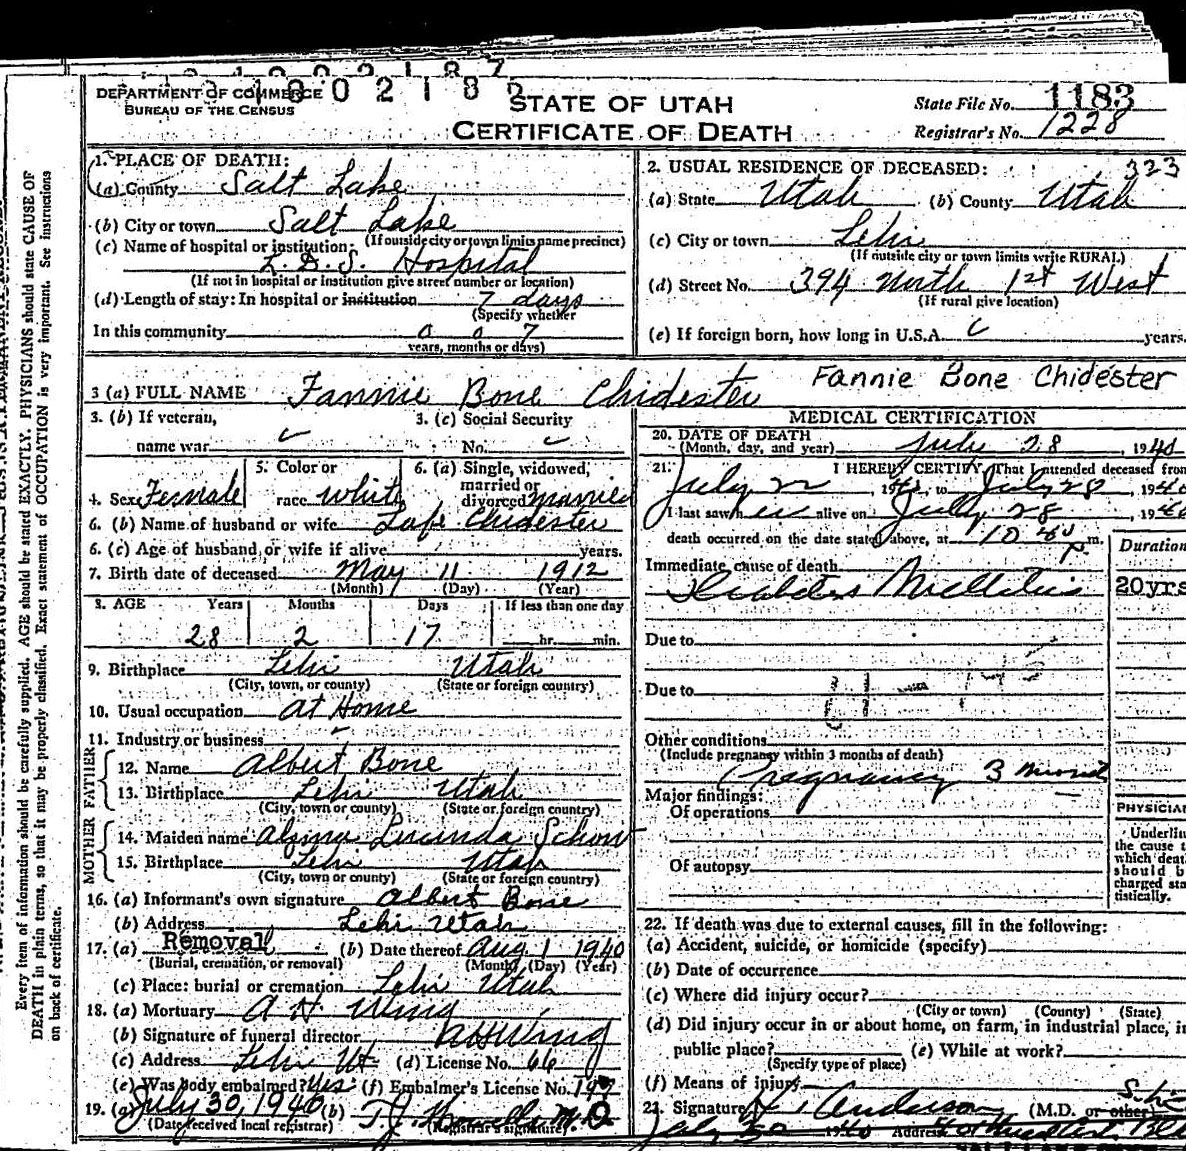 DEPARTMENT OF COMMERCE
BUREAU OF THE CENSUS
STATE OF UTAH
CERTIFICATE OF DEATH
State File No. 1183
Registrar's No. 1228
1. PLACE OF DEATH:
(a) County Salt Lake
(b) City or town Salt Lake
(If outside city or town limits name precinct)
(c) Name of hospital or institution:
L.D.S. Hospital
(If not in hospital or institution give street number or location)
(d) Length of stay: In hospital or institution 7 days
(Specify whether
In this community 0 0 7
years, months or days)
2. USUAL RESIDENCE OF DECEASED: 323
(a) State Utah (b) County Utah
(c) City or town Lehi
(If outside city or town limits write RURAL)
(d) Street No. 394 North 1st West
(If rural give location)
(e) If foreign born, how long in U.S.A. years.
3 (a) FULL NAME Fannie Bone Chidester Fannie Bone Chidester
3. (b) If veteran,
name war
3. (c) Social Security
No.
4. Sex Female
5. Color or
race white
6. (a) Single, widowed,
married or
divorced married
6. (b) Name of husband or wife Lafe Chidester
6. (c) Age of husband or wife if alive years.
7. Birth date of deceased May 11 1912
(Month) (Day) (Year)
8. AGE Years Months Days If less than one day
28 2 17 hr. min.
9. Birthplace Lehi Utah
(City, town, or county) (State or foreign country)
10. Usual occupation at Home
11. Industry or business
FATHER
12. Name Albert Bone
13. Birthplace Lehi Utah
(City, town or county) (State or foreign country)
MOTHER
14. Maiden name Lucinda Schow
15. Birthplace Lehi Utah
(City, town or county) (State or foreign country)
16. (a) Informant's own signature Albert Bone
(b) Address Lehi Utah
17. (a) Removal (b) Date thereof Aug. 1 1940
(Burial, cremation, or removal) (Month) (Day) (Year)
(c) Place: burial or cremation Lehi Utah
18. (a) Mortuary A. H. Wing
(b) Signature of funeral director A H Wing
(c) Address Lehi Ut (d) License No. 66
(e) Was body embalmed? Yes (f) Embalmer's License No.
19. (a) July 30, 1940 (b) T.J. Howells M.D.
(Date received local registrar) (Registrar's signature)
MEDICAL CERTIFICATION
20. DATE OF DEATH
(Month, day, and year) July 28, 1940
21. I HEREBY CERTIFY, That I attended deceased from
July 22, 1940, to July 28, 1940
I last saw her alive on July 28, 1940
death occurred on the date stated above, at 10 40 P. m.
Immediate cause of death
Diabetes Mellitus
Duration
20yrs
Due to
Due to
Other conditions
(Include pregnancy within 3 months of death)
Pregnancy 3
Major findings:
Of operations
Of autopsy
PHYSICIAN
Underline
the cause t
which deat
should b
charged sta
tistically.
22. If death was due to external causes, fill in the following:
(a) Accident, suicide, or homicide (specify)
(b) Date of occurrence
(c) Where did injury occur?
(City or town) (County) (State)
(d) Did injury occur in or about home, on farm, in industrial place, in
public place? (e) While at work?
(Specify type of place)
(f) Means of injury
23. Signature Anderson (M.D. or other)
July 30 1940 Address
Every item of information should be carefully supplied. AGE should be stated EXACTLY. PHYSICIANS should state CAUSE OF
DEATH in plain terms, so that it may be properly classified. Exact statement of OCCUPATION is very important. See instructions
on back of certificate.